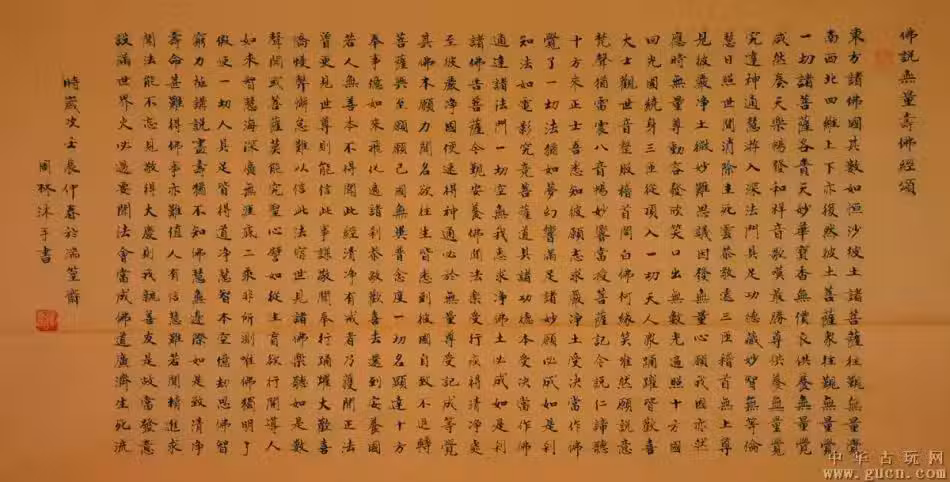 佛說無量壽佛經頌
東方諸佛國其數如恒沙彼土諸菩薩往覲無量覺
南西北四維上下亦復然彼土菩薩眾往覲無量覺
一切諸菩薩各齎天妙華寶香無價衣供養無量覺
咸然奏天樂暢發和雅音歌歎最勝尊供養無量覺
究達神通慧遊入深法門具足功德藏妙智無等倫
慧日照世間消除生死雲恭敬遶三匝稽首無上尊
見彼嚴淨土微妙難思議因發無量心願我國亦然
應時無量尊動容發欣笑口出無數光遍照十方國
回光圍繞身三匝從頂入一切天人眾踊躍皆歡喜
大士觀世音整服稽首問白佛何緣笑唯然願說意
梵聲猶雷震八音暢妙響當授菩薩記今說仁諦聽
十方來正士吾悉知彼願志求嚴淨土受決當作佛
覺了一切法猶如夢幻響滿足諸妙願必成如是剎
知法如電影究竟菩薩道具諸功德本受決當作佛
通達諸法門一切空無我專求淨佛土必成如是剎
諸佛告菩薩令覲安養佛聞法樂受行疾得清淨處
至彼嚴淨國便速得神通必於無量尊受記成等覺
其佛本願力聞名欲往生皆悉到彼國自致不退轉
菩薩興至願願己國無異普念度一切名顯達十方
奉事億如來飛化遍諸剎恭敬歡喜去還到安養國
若人無善本不得聞此經清淨有戒者乃獲聞正法
曾更見世尊則能信此事謙敬聞奉行踊躍大歡喜
憍慢弊懈怠難以信此法宿世見諸佛樂聽如是教
聲聞或菩薩莫能究聖心譬如從生盲欲行開導人
如來智慧海深廣無涯底二乘非所測唯佛獨明了
假使一切人具足皆得道淨慧智本空億劫思佛智
窮力極講說盡壽猶不知佛慧無邊際如是致清淨
壽命甚難得佛世亦難值人有信慧難若聞精進求
聞法能不忘見敬得大慶則我親善友是故當發意
設滿世界火必過要聞法會當成佛道廣濟生死流
時歲次壬辰仲春於湍篁齋
周林沐手書
中华古玩网
www.gucn.com